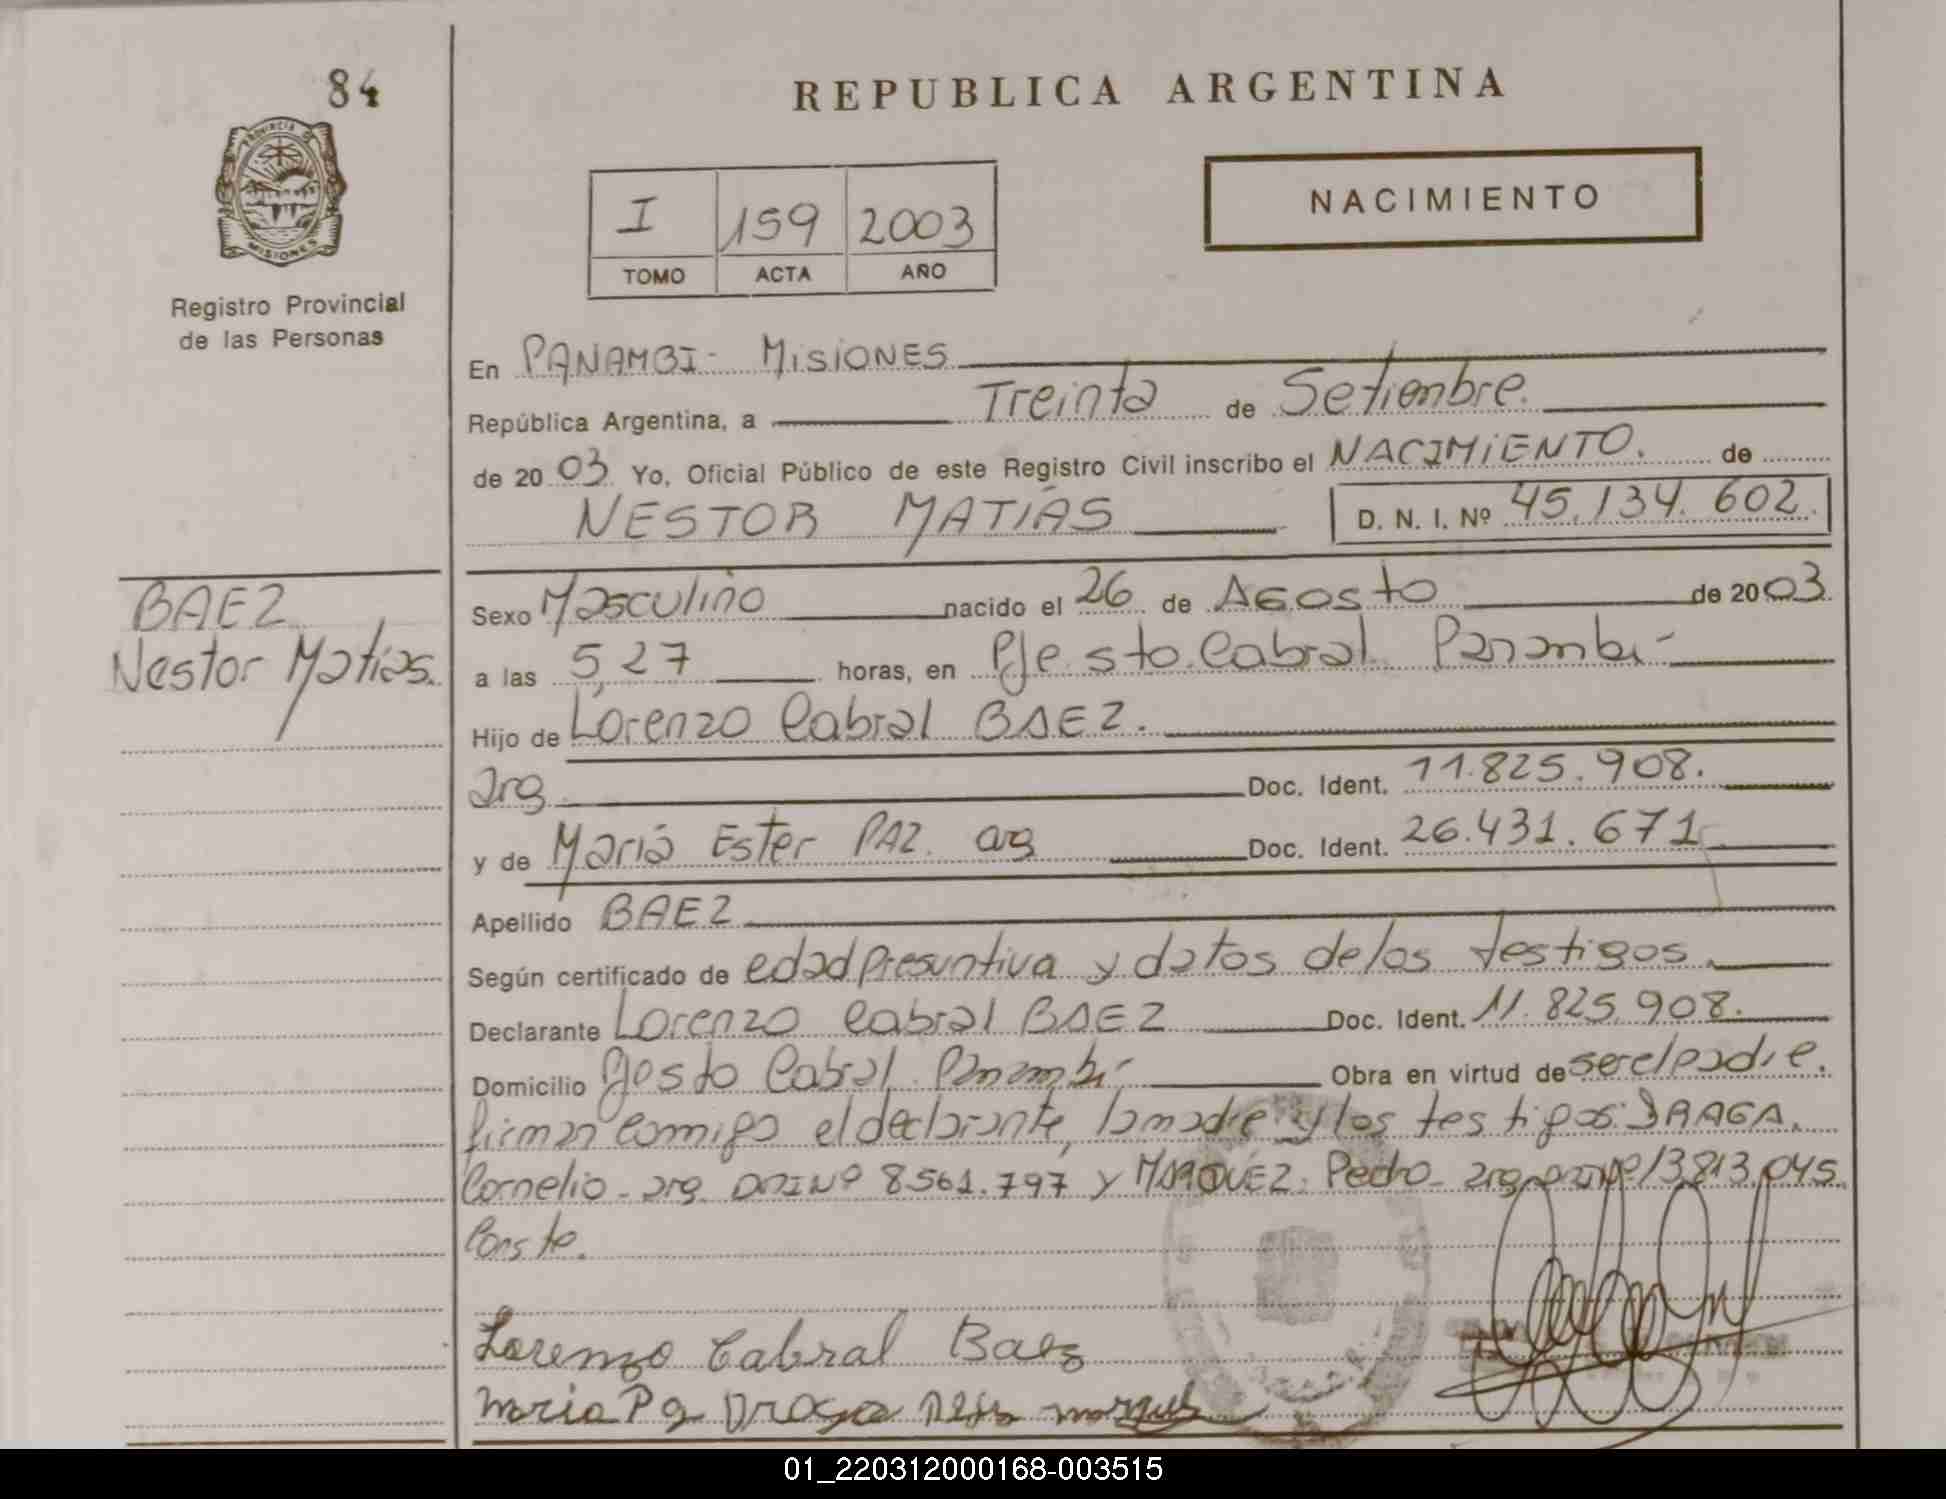 84
REPUBLICA ARGENTINA
PROVINCIA DE
MISIONES
Registro Provincial
de las Personas
I 159 2003
TOMO ACTA AÑO
NACIMIENTO
En PANAMBI - MISIONES
República Argentina, a Treinta de Setiembre.
de 2003 Yo, Oficial Público de este Registro Civil inscribo el NACIMIENTO. de
NESTOR MATIAS D. N. I. Nº 45.134.602.
BAEZ
Nestor Matias.
Sexo Masculino nacido el 26 de Agosto de 2003.
a las 5,27 horas, en Pje. sto. Cabral Panambi -
Hijo de Lorenzo Cabral BAEZ.
arg Doc. Ident. 11.825.908.
y de Maria Ester PAZ. arg Doc. Ident. 26.431.671
Apellido BAEZ
Según certificado de edad presuntiva y datos de los testigos.
Declarante Lorenzo Cabral BAEZ Doc. Ident. 11.825.908.
Domicilio Cabral Panambi Obra en virtud de ser el padre.
firman comigo el declarante, la madre y los testigos:
Cornelio - arg. DNI Nº 8561.797 y MARQUEZ. Pedro - arg. 13.813.045.
Conste.
Lorenzo Cabral Baez
maria
01_220312000168-003515